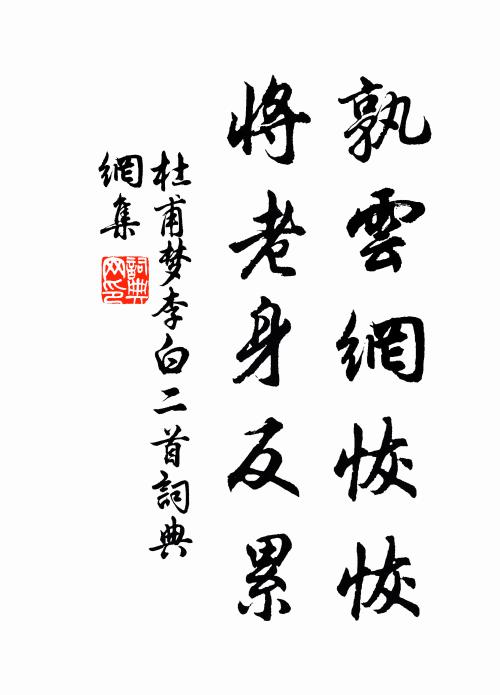 孰雲網恢恢
將老身反累
杜甫梦李白二首詞典
網集
詞典網印